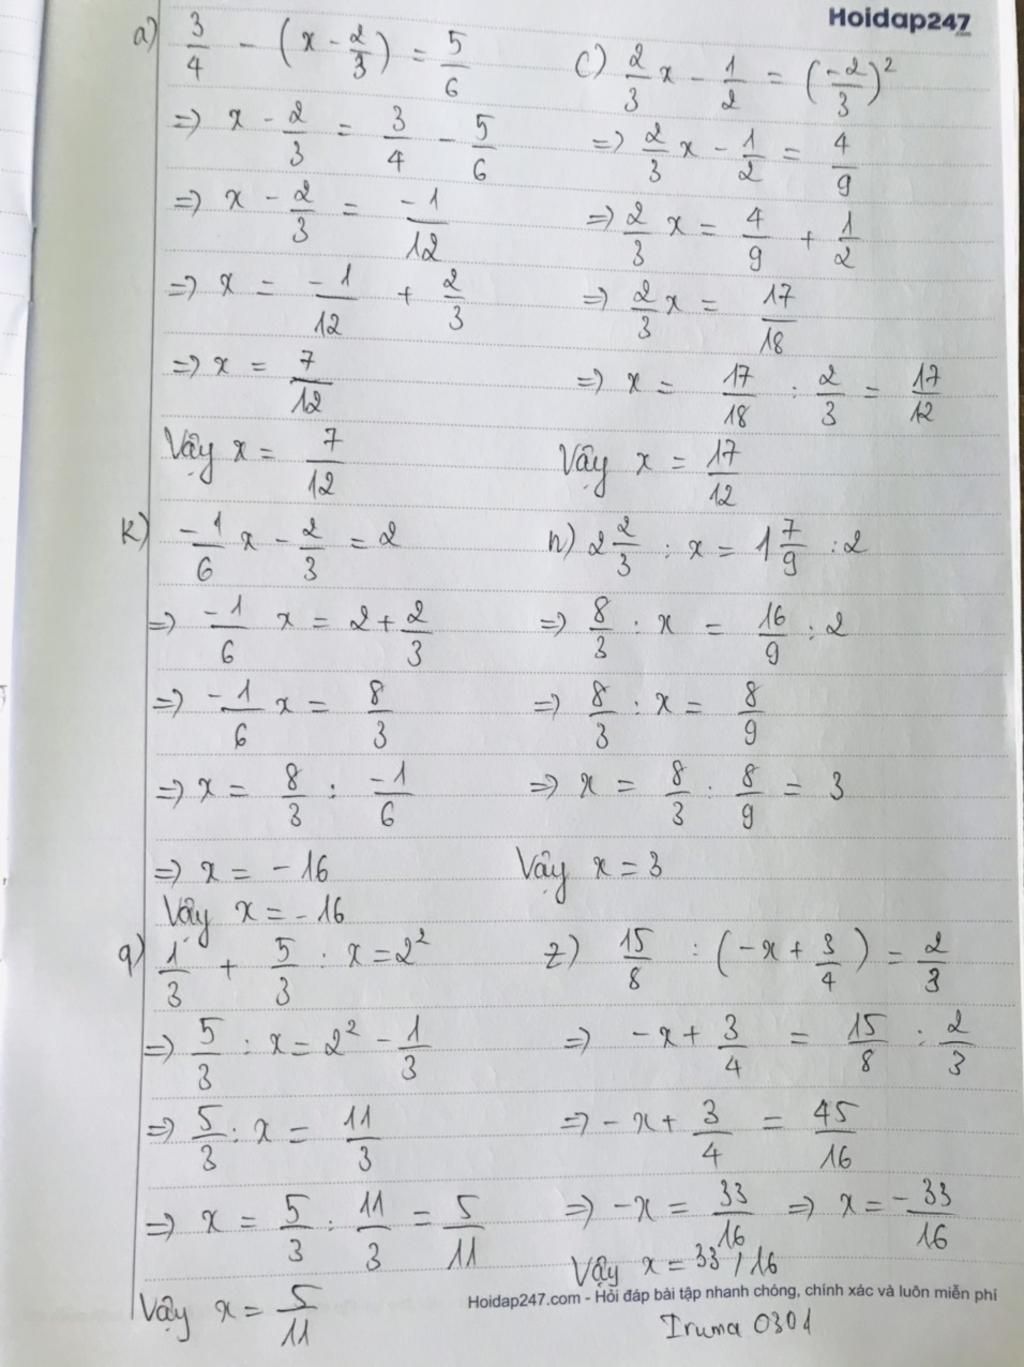 Hoidap247.com
a) 3/4 - (x - 2/3) = 5/6
=> x - 2/3 = 3/4 - 5/6
=> x - 2/3 = -1/12
=> x = -1/12 + 2/3
=> x = 7/12
Vậy x = 7/12
c) 2/3 x - 1/2 = (-2/3)²
=> 2/3 x - 1/2 = 4/9
=> 2/3 x = 4/9 + 1/2
=> 2/3 x = 17/18
=> x = 17/18 : 2/3 = 17/12
Vậy x = 17/12
k) -1/6 x - 2/3 = 2
=> -1/6 x = 2 + 2/3
=> -1/6 x = 8/3
=> x = 8/3 : -1/6
=> x = -16
Vậy x = -16
n) 2 2/3 : x = 1 7/9 : 2
=> 8/3 : x = 16/9 : 2
=> 8/3 : x = 8/9
=> x = 8/3 : 8/9 = 3
Vậy x = 3
q) 1/3 + 5/3 : x = 2²
=> 5/3 : x = 2² - 1/3
=> 5/3 : x = 11/3
=> x = 5/3 : 11/3 = 5/11
Vậy x = 5/11
z) 15/8 : (-x + 3/4) = 2/3
=> -x + 3/4 = 15/8 : 2/3
=> -x + 3/4 = 45/16
=> -x = 33/16 => x = -33/16
Vậy x = 33/16
Hoidap247.com - Hỏi đáp bài tập nhanh chóng, chính xác và luôn miễn phí
Iruma 0301